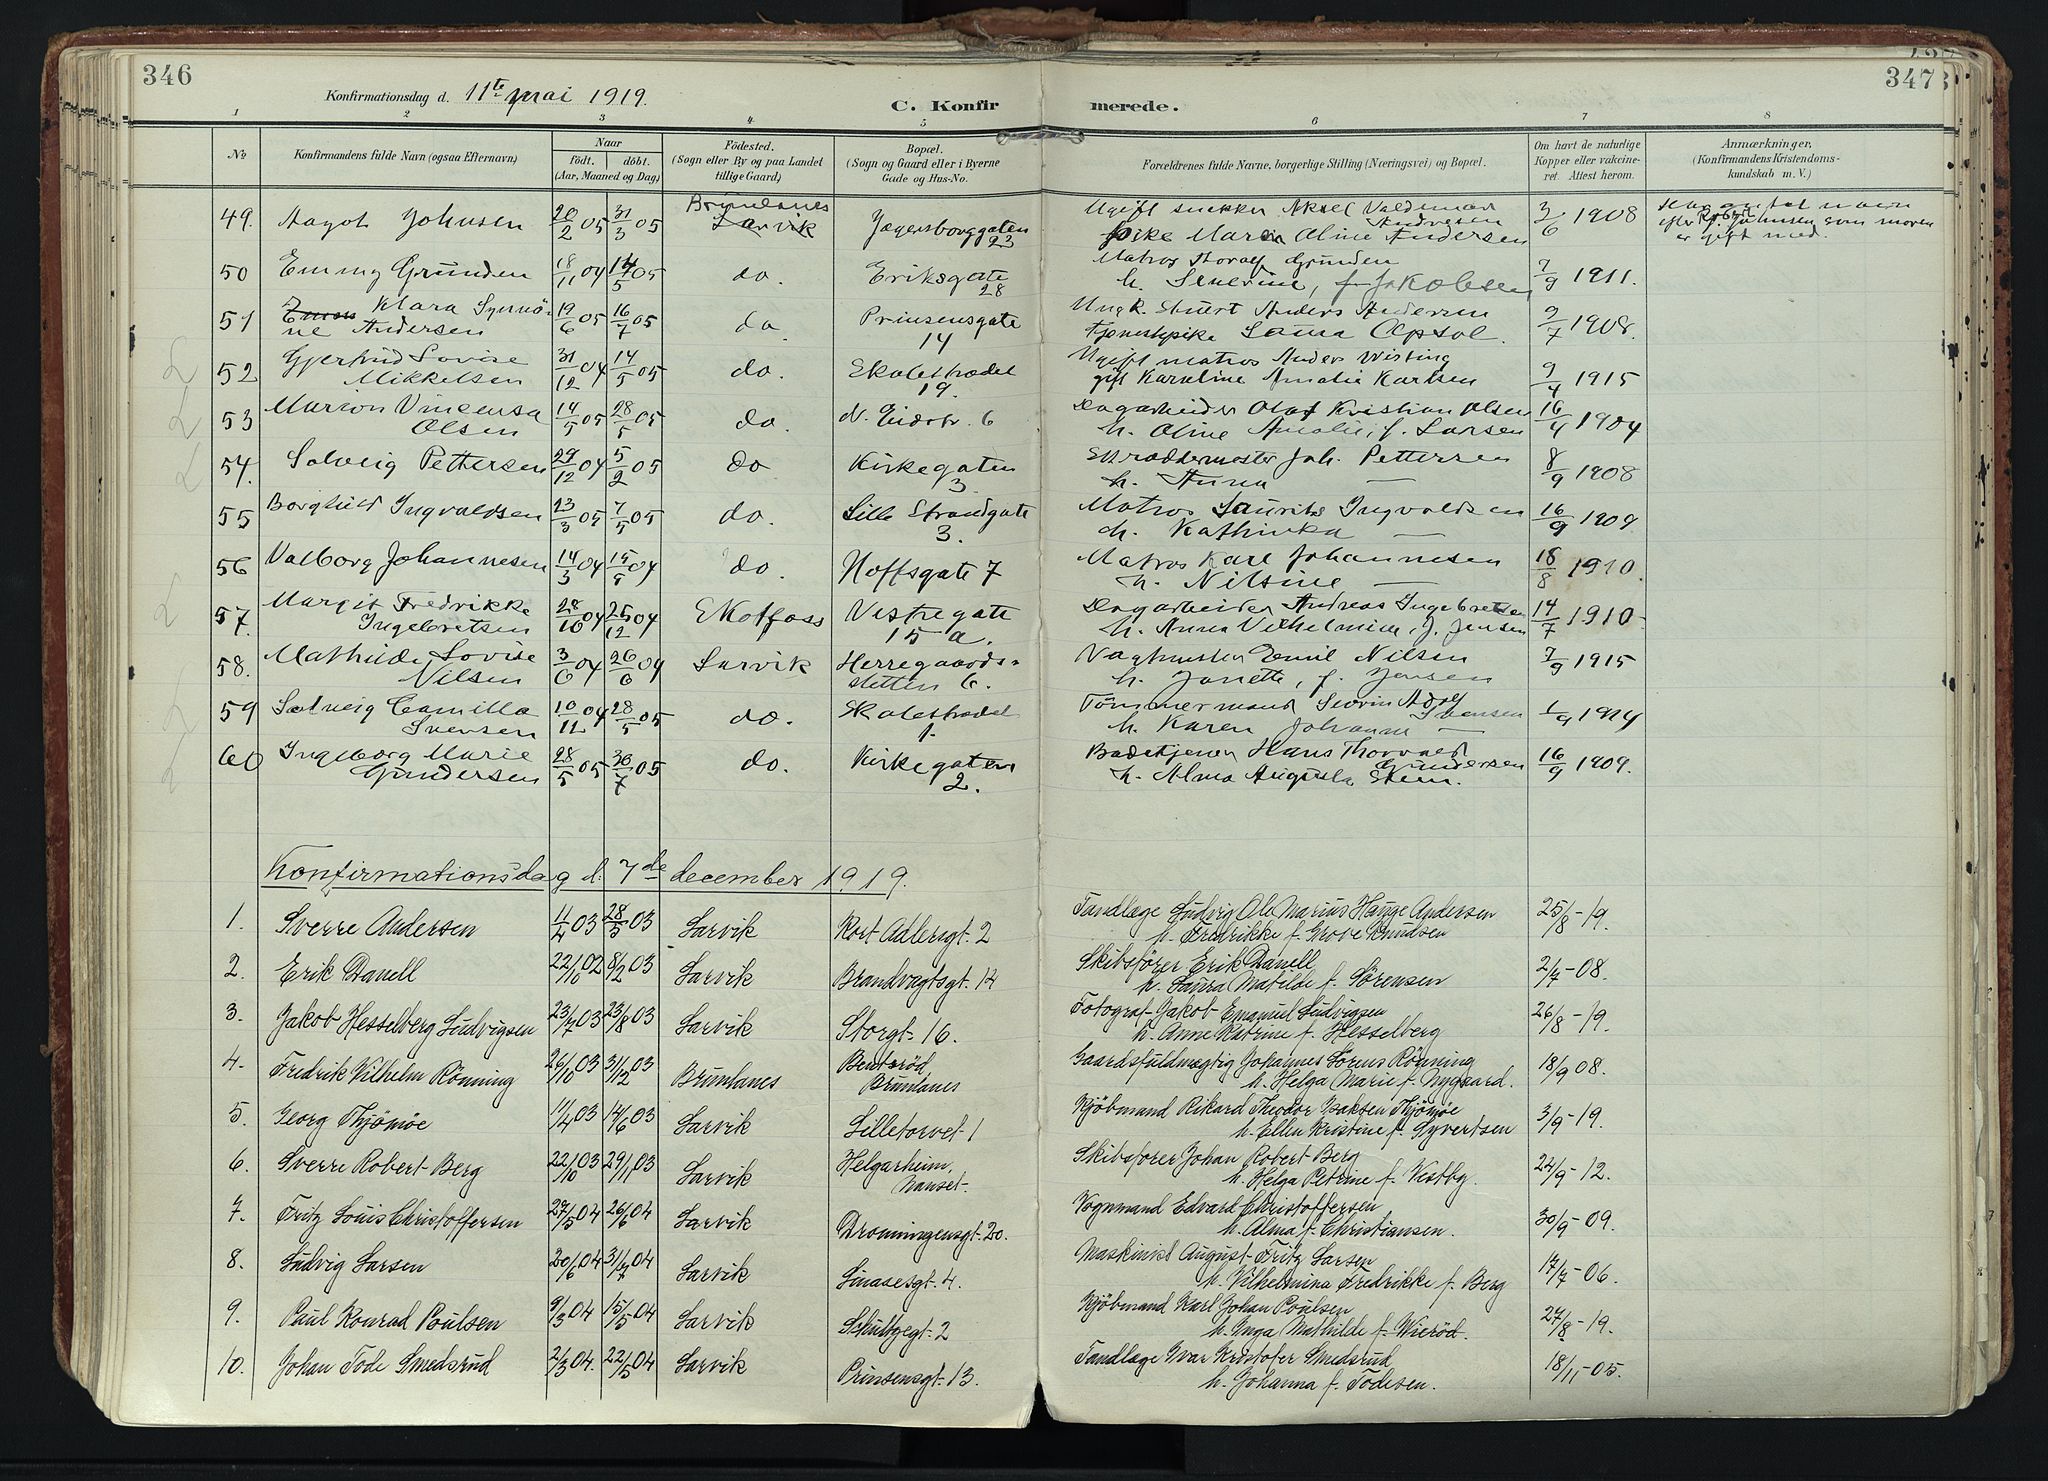 346
Konfirmationsdag d. 11te mai 1919.
C. Konfirmerede.
347
1 2 3 4 5 6 7 8
No
Konfirmandens fulde Navn (ogsaa Efternavn)
Naar
födt. döbt.
(Aar, Maaned og Dag)
Födested.
(Sogn eller By og paa Landet
tillige Gaard)
Bopæl.
(Sogn og Gaard eller i Byerne
Gade og Hus-No.
Forældrenes fulde Navne, borgerlige Stilling (Næringsvei) og Bopæl.
Om havt de naturlige
Kopper eller vakcine-
ret. Attest herom.
Anmærkninger,
(Konfirmandens Kristendoms-
kundskab m. V.)
49. Aagot Johnsen 20/2 05 31/3 05 Brunlanes Larvik Jægersborggaten 23 Ugift snekker Aksel Valdemar Andresen
pike Maren Oline Andersen 3/6 1908 efter Johnsen som moren
er gift med.
50 Emmy Grunden 18/11 04 14/5 05 do. Eriksgate 28 Matros Thoralf Grunden
h. Severine, f. Jakobsen 7/9 1911.
51 Klara Synnö-
ne Andersen 19/6 05 16/7 05 do Prinsensgate 14 Ungk. Stuert Anders Andersen
Tjenestepike Laura Opsal. 9/7 1908.
52 Gjertrud Lovise
Mikkelsen 31/12 04 14/5 05 do. Skolestrædet 19. Ugift matros Anders Wisting
gift Karoline Amalie Karlsen 9/4 1915
53 Marion Vincensa
Olsen 14/5 05 28/5 05 do. N. Eidstr. 6 Dagarbeider Olaf Kristian Olsen
h. Oline Amalie, f. Larsen 16/4 1904
54. Solveig Pettersen 29/12 04 5/2 05 do Kirkegaten 3 Skræddermester Joh. Pettersen
h. Anna — 8/9 1908
55 Borghild Ingvaldsen 23/3 05 7/5 05 do. Lille Strandgate 3. Matros Laurits Ingvaldsen
h. Kathinka — 16/9 1909
56 Valborg Johannesen 14/3 04 15/5 04 do. Hoffsgate 7 Matros Karl Johannesen
h. Nilsine — 18/8 1910.
57. Margit Fredrikke
Ingebretsen 28/10 04 25/12 04 Skotfoss Vestregate 15 a. Dagarbeider Andreas Ingebretsen
h. Anna Vilhelmine, f. Jensen 14/7 1910-
58. Mathilde Lovise
Nilsen 3/6 04 26/6 04 Larvik Herregaards-
sletten 6. Vagtmester Emil Nilsen
h. Janette, f. Jensen 7/9 1915
59 Solveig Camilla
Svensen 10/12 04 28/5 05 do. Skolestrædet 1. Tömmermand Severin Adolf Svensen
h. Karen Johanne — 1/9 1914
60 Ingeborg Marie
Gundersen 28/5 05 30/7 05 do. Kirkegaten 2. Badetjener Hans Thorvald Gundersen
h. Alma Augusta Steen. 16/9 1909.
Konfirmationsdag d. 7de december 1919.
1. Sverre Andersen 11/4 03 28/5 03 Larvik Kort Adlersgt. 2 Tandlæge Ludvig Ole Marius Hauge Andersen
h. Fredrikke f. Grove Knudsen 25/8-19.
2. Erik Danell 22/10 02 8/2 03 Larvik Brandvagtsgt. 14 Skibsförer Erik Danell
h. Laura Matilde f. Sörensen 2/7-08.
3. Jakob Hesselberg Ludvigsen 23/7 03 23/8 03 Larvik Storgt. 16. Fotograf Jakob Emanuel Ludvigsen
h. Anne Katrine f. Hesselberg 26/8-19.
4. Fredrik Vilhelm Rönning 26/10 03 31/12 03 Brunlanes Bentsröd,
Brunlanes Gaardsfuldmægtig Johannes Sörens Rönning
h. Helga Marie f. Nygaard. 18/9 08.
5. Georg Thjömöe 11/4 03 14/6 03 Larvik Lilletorvet 1 Kjöbmand Rikard Theodor Isaksen Thjömöe
h. Ellen Kristine f. Syvertsen 3/9-19.
6. Sverre Robert Berg 22/10 03 29/11 03 Larvik Helgarheim,
Nanset. Skibsförer Johan Robert Berg
h. Helga Petrine f. Vestby. 24/9-12.
7. Fritz Louis Christoffersen 27/5 04 26/6 04 Larvik Dronningensgt. 20. Vognmand Edvard Christoffersen
h. Alma f. Christiansen. 30/9-09.
8. Ludvig Larsen 20/6 04 31/7 04 Larvik Linasesgt. 4. Maskinist August Fritz Larsen
h. Vilhelmina Fredrikke f. Berg 17/7-06.
9. Paul Konrad Poulsen 9/3 04 15/5 04 Larvik Schultzegt. 2 Kjöbmand Karl Johan Poulsen
h. Inga Mathilde f. Wieröd. 27/8-19.
10. Johan Tode Smedsrud 2/3 04. 22/5 04 Larvik Prinsensgt. 13. Tandlæge Ivar Kristofer Smedsrud
h. Johanna f. Todesen. 18/11-05.